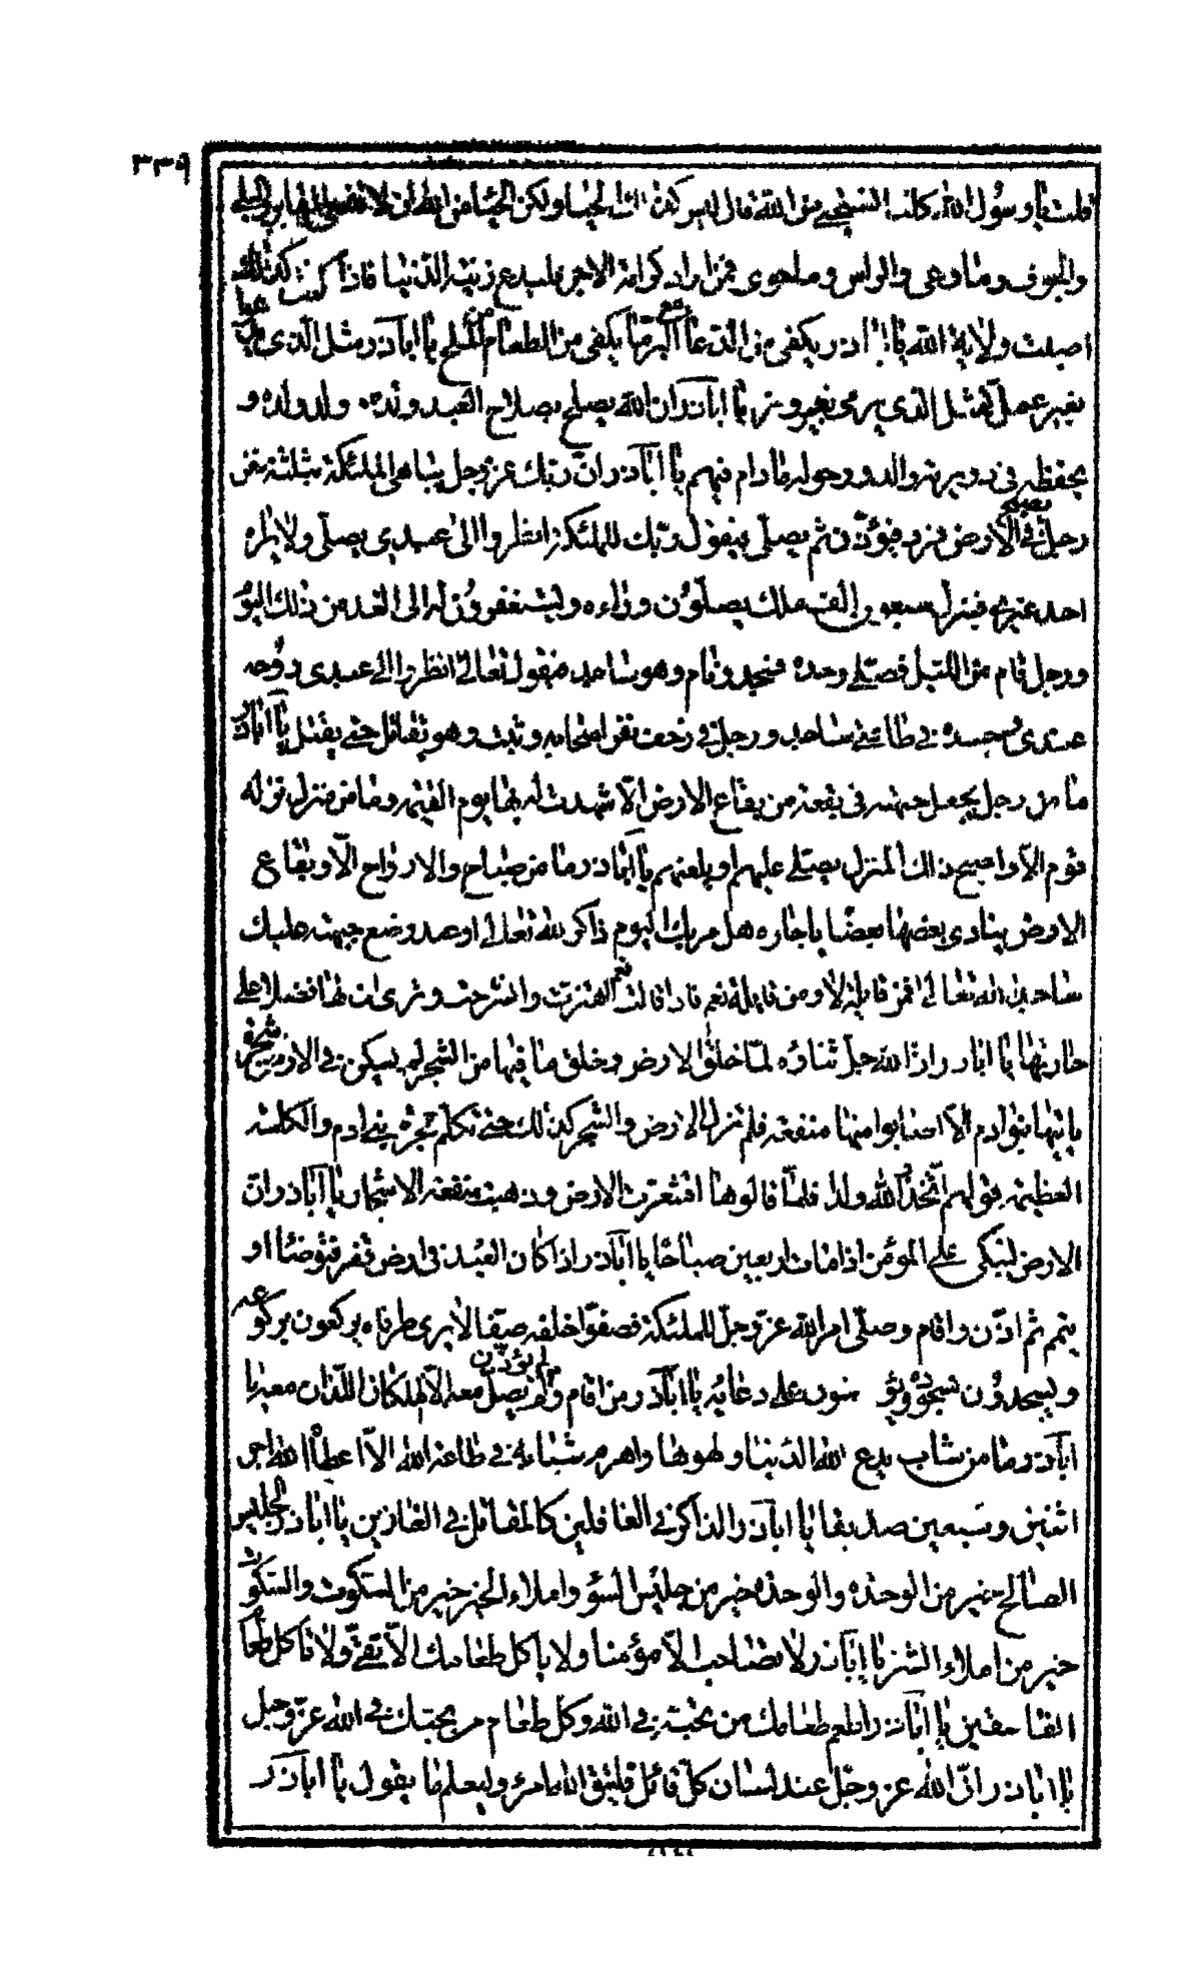 ٣٣٩
قلت يا رسول الله كلنا نستحيي من الله قال ليس كذلك الحياء ولكن الحياء من الله ان لا تنسى المقابر والبلى
والجوف وما وعى والراس وما حوى فمن اراد كرامة الاخرة فليدع زينة الدنيا فاذا كنت كذلك
اصبت ولاية الله يا اباذر يكفى من الدعاء مع البر ما يكفى من الطعام من الملح يا اباذر مثل الذى يدعو
بغير عمل كمثل الذى يرمى بغير وتر يا اباذر ان الله يصلح بصلاح العبد ولده وولد ولده و
يحفظه فى دويرته والدور حوله ما دام فيهم يا اباذر ان ربك عز وجل يباهى الملئكة بثلثة نفر
رجل يصبح فى الارض فرد فيؤذن ثم يصلى فيقول ربك للملئكة انظروا الى عبدى يصلى ولا يراه
احد غيرى فينزل سبعون الف ملك يصلون وراءه ويستغفرون له الى الغد من ذلك اليوم
ورجل قام من الليل فصلى وحده فسجد ونام وهو ساجد فيقول تعالى انظروا الى عبدى روحه
عندى وجسده فى طاعتى ساجد ورجل فى زحف نفر اصحابه وثبت وهو يقاتل حتى يقتل يا اباذر
ما من رجل يجعل جبهته فى بقعة من بقاع الارض الا شهدت له بها يوم القيمة وما من منزل نزله
قوم الا واصبح ذلك المنزل يصلى عليهم او يلعنهم يا اباذر ما من صباح ولا رواح الا وبقاع
الارض ينادى بعضها بعضا يا جاره هل مر بك اليوم ذاكر لله تعالى او عبد وضع جبهته عليك
ساجدا لله تعالى فمن قائلة لا ومن قائلة نعم فاذا قالت نعم اهتزت وانشرحت وترى ان لها فضلا على
جارتها يا اباذر ان الله جل ثناؤه لما خلق الارض وخلق ما فيها من الشجر لم يكن فى الارض شجرة
ياتيها بنو ادم الا اصابوا منها منفعة فلم تزل الارض والشجر كذلك حتى تكلم فجرة بنى ادم والكلمة
العظيمة قولهم اتخذ الله ولدا فلما قالوها اقشعرت الارض وذهبت منفعة الاشجار يا اباذر ان
الارض لتبكى على المؤمن اذا مات اربعين صباحا يا اباذر اذا كان العبد فى ارض قفر فتوضا او
يتمم ثم اذن واقام وصلى امر الله عز وجل الملئكة فصفوا خلفه صفا لا يرى طرفاه يركعون بركوعه
ويسجدون بسجوده ويؤمنون على دعائه يا اباذر من اقام ولم يؤذن لم يصل معه الا الملكان اللذان معه يا
اباذر ما من شاب يدع لله الدنيا ولهوها واهرم شبابه فى طاعة الله الا اعطاه الله اجر
اثنين وسبعين صديقا يا اباذر الذاكر فى الغافلين كالمقاتل فى الفارين يا اباذر الجليس
الصالح خير من الوحدة والوحدة خير من جليس السوء واملاء الخير خير من السكوت والسكوت
خير من املاء الشر يا اباذر لا تصاحب الا مؤمنا ولا ياكل طعامك الا تقى ولا تاكل طعام
الفاسقين يا اباذر اطعم طعامك من تحبه فى الله وكل طعام من يحبك فى الله عز وجل
يا اباذر ان الله عز وجل عند لسان كل قائل فليتق الله امرء وليعلم ما يقول يا اباذر